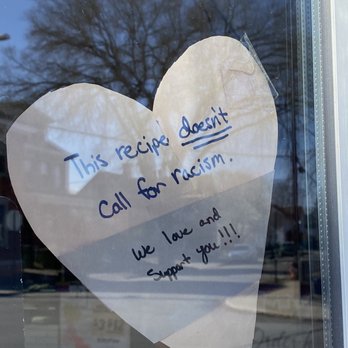 This recipe doesn't
call for racism.
We love and
support you!!!